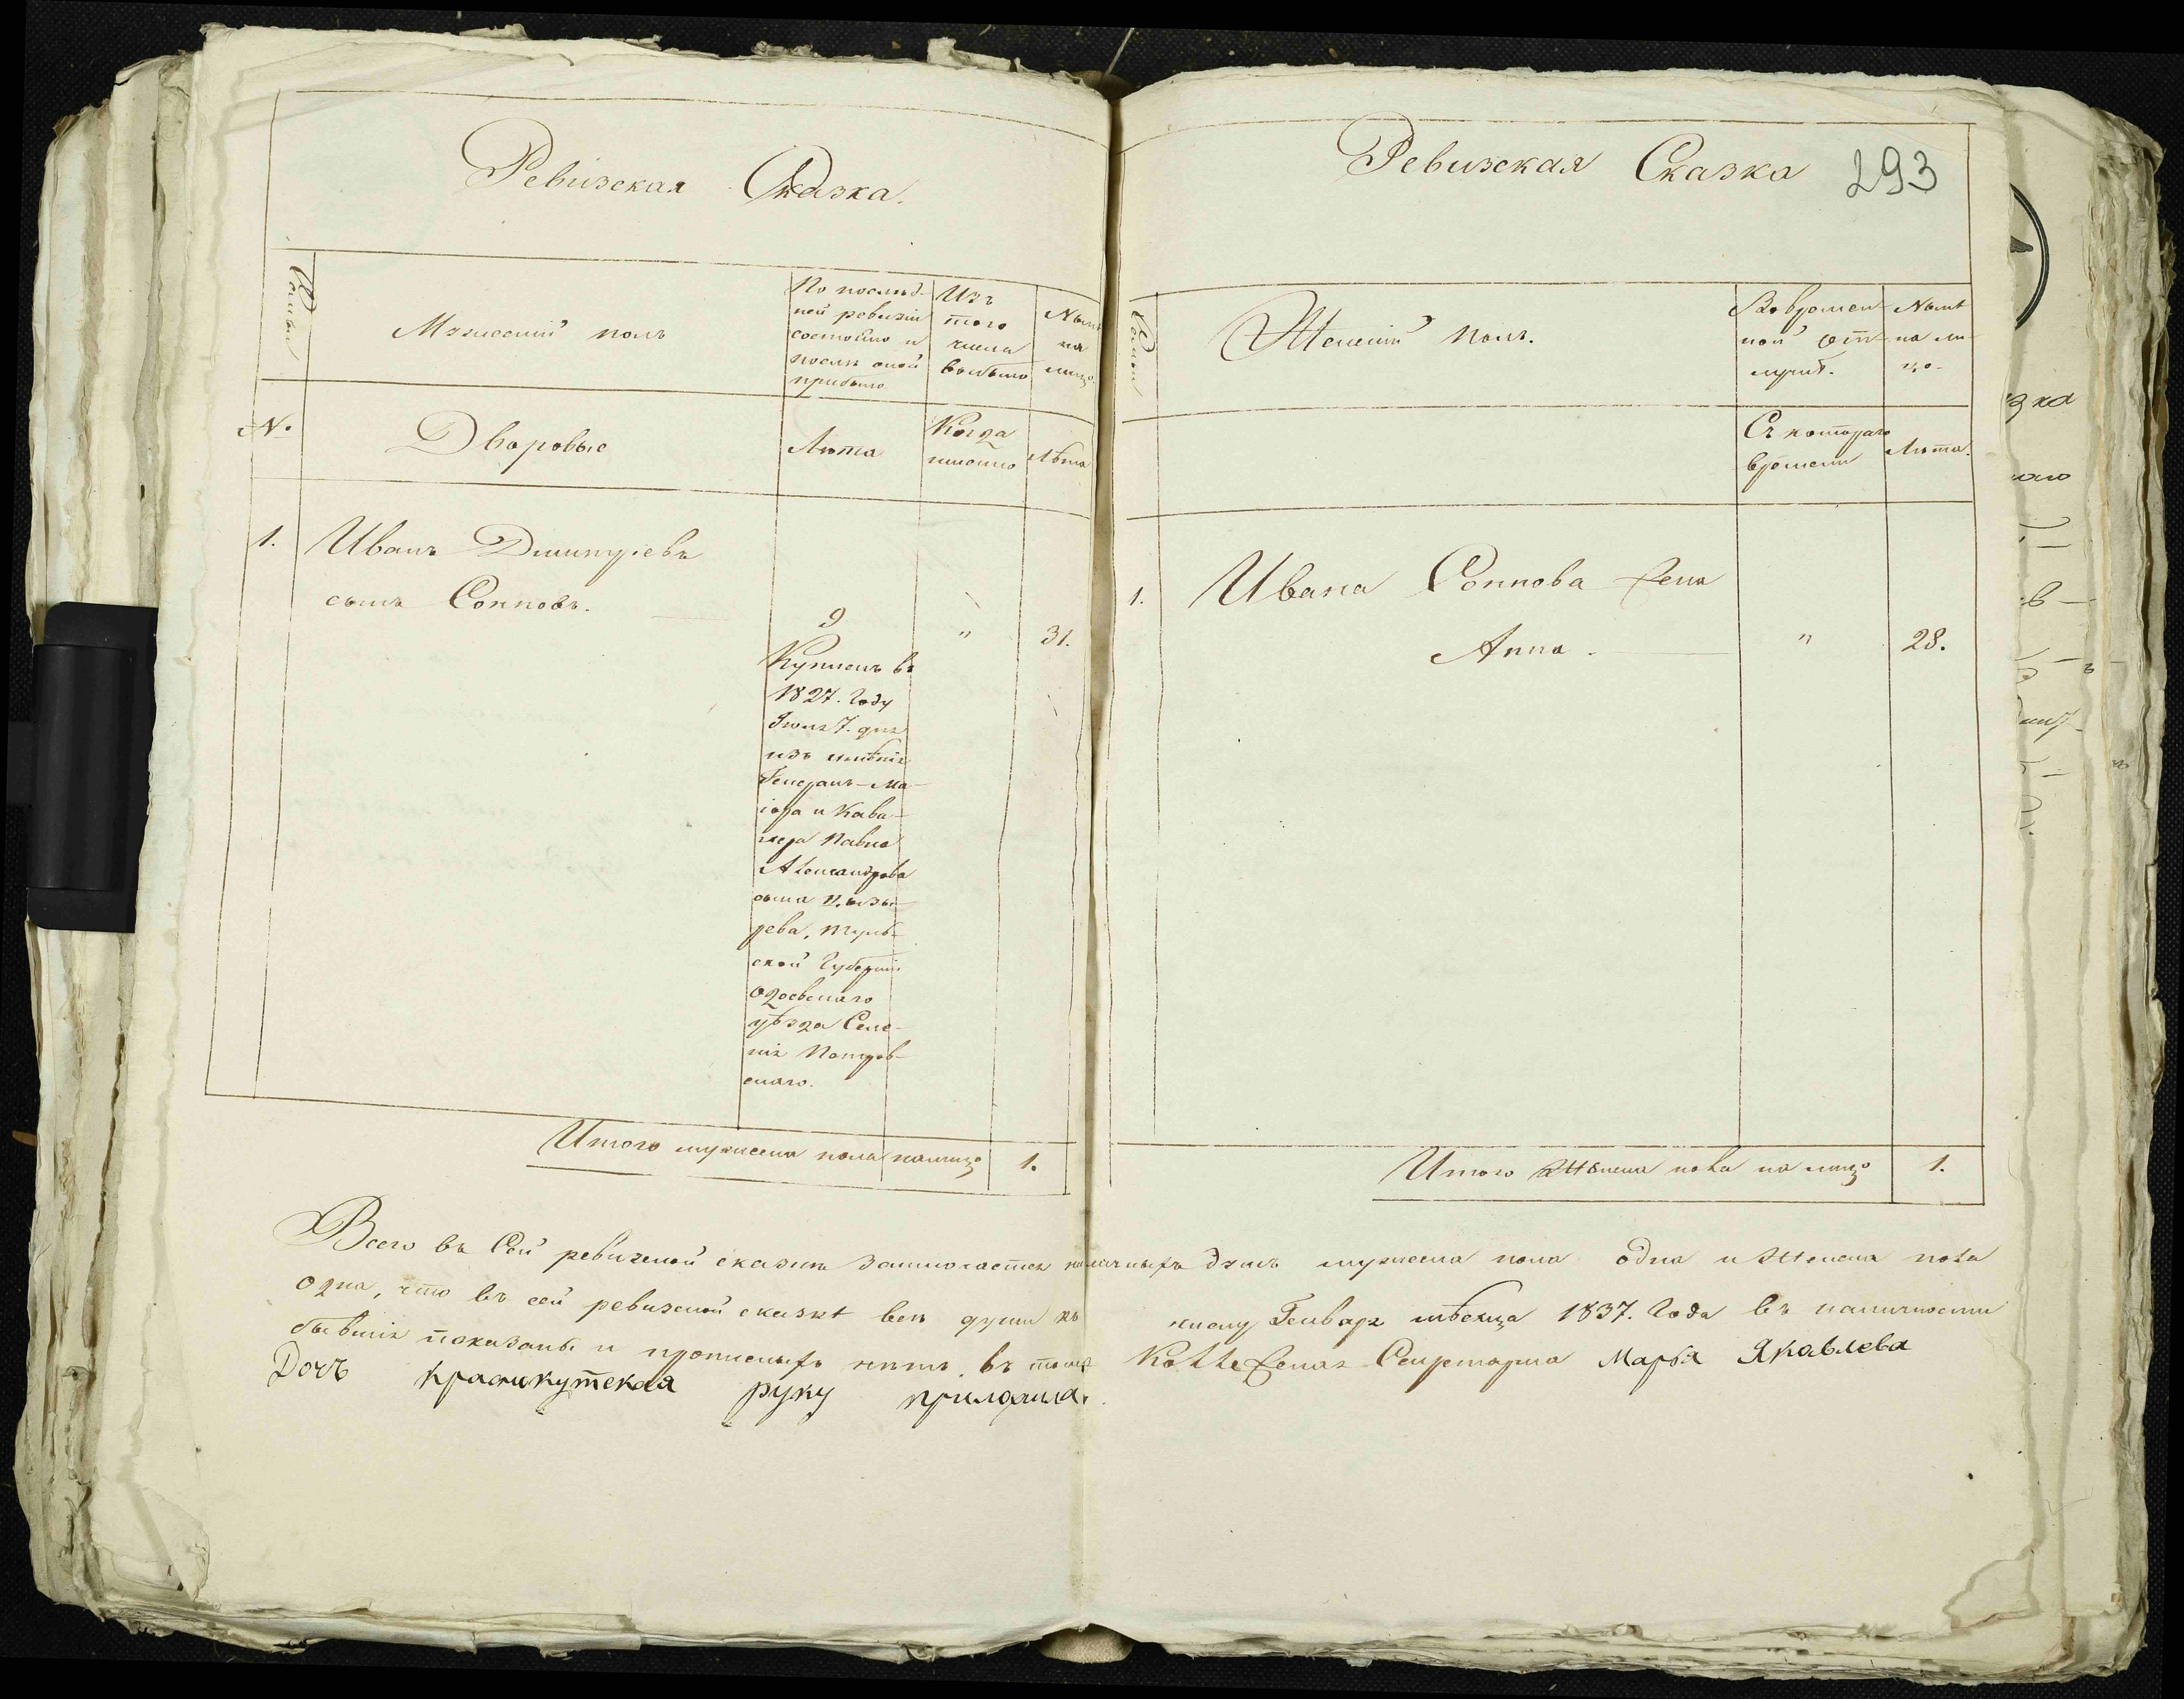 Ревизская Сказка.
Семьи
Мужескій полъ
По послѣд-
ней ревизіи
состояло и
послѣ оной
прибыло
Изъ
того
числа
выбыло
Нынѣ
на
лицо.
№.
Дворовые
Лѣта
Когда
именно
Лѣта
1.
Иванъ Дмитріевъ
сынъ Сопповъ.
9
"
31.
Купленъ въ
1827. году
Іюля 7. дня
изъ имѣнія
Генералъ-Ма-
іора и Кава-
лера Павла
Александрова
сына
рева, Туль-
ской Губерніи
Одоевскаго
уѣзда Селе-
нія Петров-
скаго.
Итого мужеска пола налицо
1.
Ревизская Сказка
293
Семьи
Женскій полъ.
Во времен-
ной от-
лучкѣ.
Нынѣ
на ли-
цо.
Съ котораго
времени
Лѣта.
1.
Ивана Соппова жена
Анна.
"
28.
Итого Женска пола на лицо
1.
Всего въ Сей ревизской сказкѣ заключается наличныхъ душъ мужеска пола одна и Женска пола
одна, что въ сей ревизской сказкѣ всѣ души къ Генваря мѣсяца 1837. Года въ наличности
бывшія показаны и прописныхъ нѣтъ. въ томъ Коллежская Секретарша Марья Яковлева
Дочь Краснокутская руку приложила.